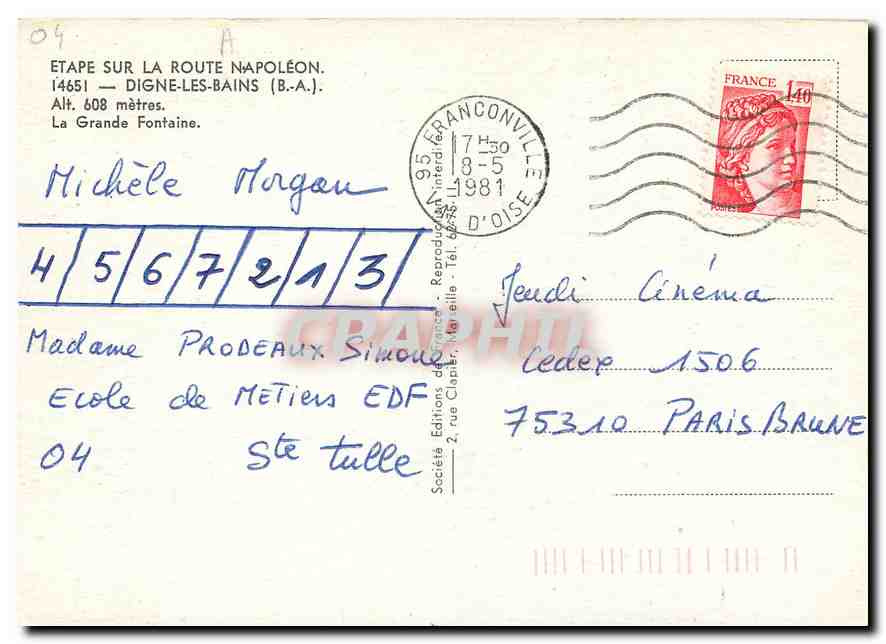 04 A
ETAPE SUR LA ROUTE NAPOLÉON.
14651 — DIGNE-LES-BAINS (B.-A.).
Alt. 608 mètres.
La Grande Fontaine.
Michèle Morgan
4/5/6/7/2/1/3/
Madame PRODEAUX Simone
Ecole de METiers EDF
04 Ste tulle
Société Editions de France - Reproduction interdite
2, rue Clapier, Marseille - Tél.
95 FRANCONVILLE
17 H 30
8-5
1981
VAL D'OISE
FRANCE
1,40
POSTES
Jeudi Cinéma
Cedex 1506
75310 PARIS BRUNE
CRAPHIL